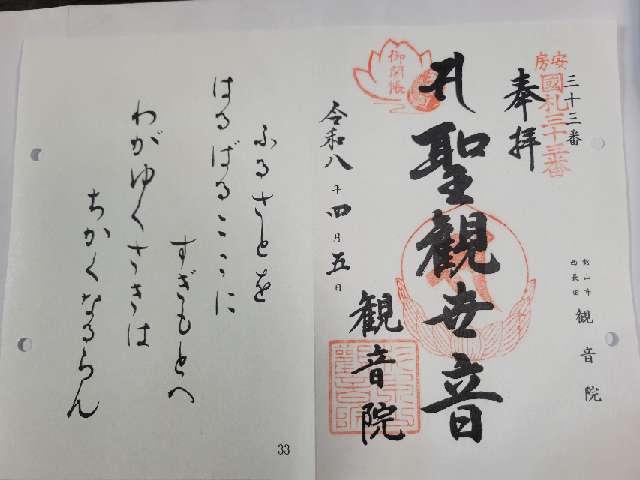 安房
國札三十三番
三十三番
奉拝
館山市
西長田
観音院
聖観世音
御開帳
令和八年四月五日
観音院
ふるさとを
はるばるこゝに
すぎもとへ
わがゆくさきは
ちかくなるらん
33